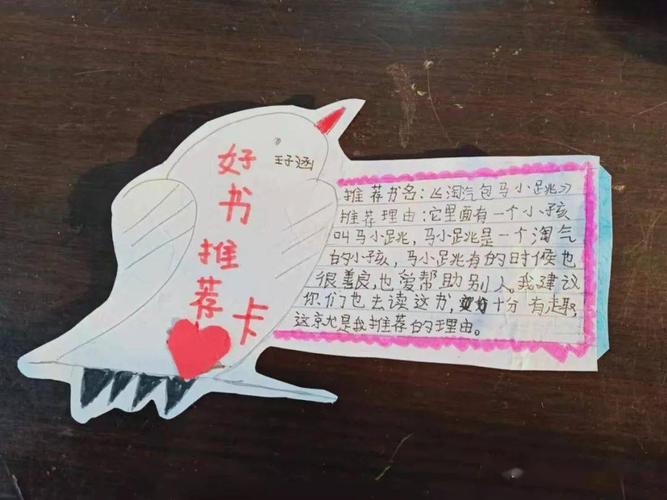 好书推荐卡
王子涵
推荐书名：《淘气包马小跳》
推荐理由：它里面有一个小孩
叫马小跳，马小跳是一个淘气
的小孩，马小跳有的时候也
很善良，也爱帮助别人。我建议
你们也去读这书，十分有趣，
这就是我推荐的理由。